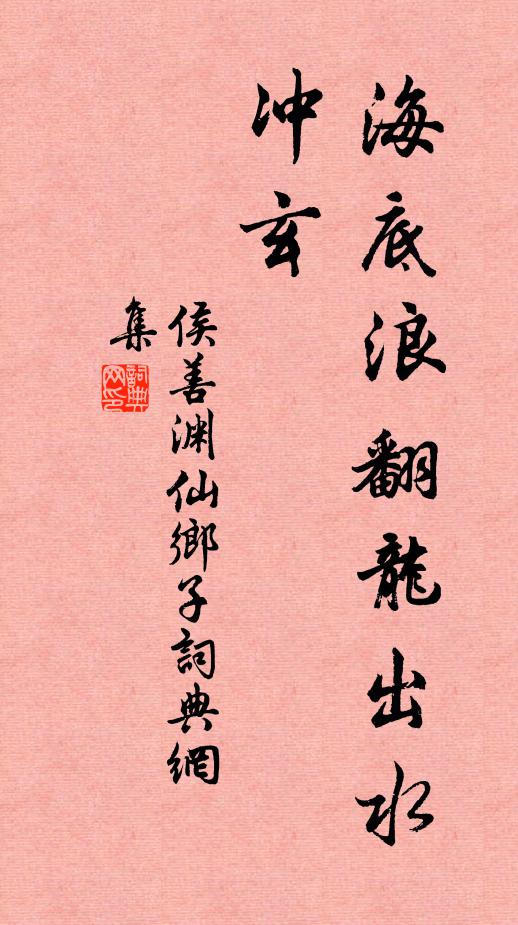 海底浪翻龍出水
冲玄
侯善渊仙鄉子詞典網
集
詞典
网印